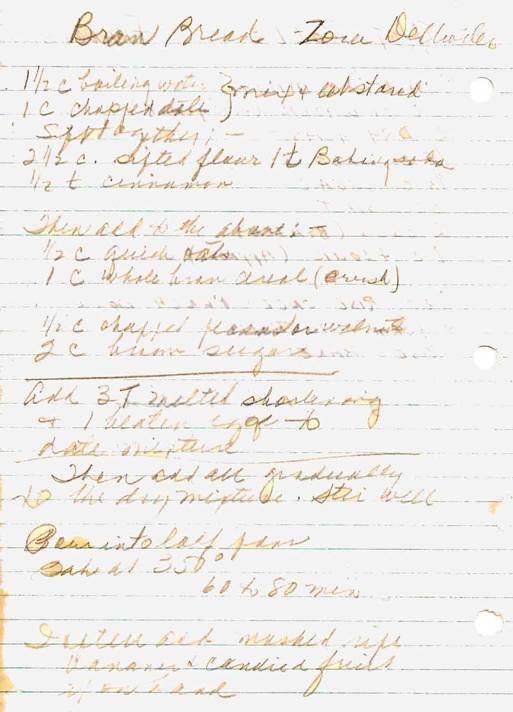 Bran Bread - Zora
1 1/2 c boiling water } mix & let stand
1 c chopped dates }
Sift together; -
2 1/2 c. sifted flour 1 t Baking soda
1/2 t cinnamon
Then add to the above: -
1/2 c quick oats
1 c whole bran cereal (crush)
1/2 c chopped pecans or walnuts
2 c brown sugar
Add 3 T melted shortening
& 1 beaten egg to
date mixture
Then add all gradually
to the dry mixture. Stir well
Pour into loaf pan
bake at 350°
60 to 80 min
I often add mashed ripe
bananas & candied fruit
if on hand